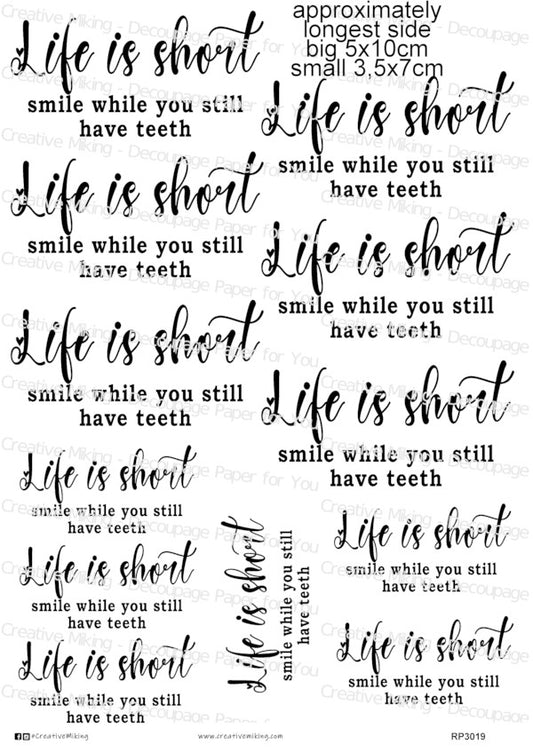 approximately
longest side
big 5x10cm
small 3,5x7cm
Life is short
smile while you still
have teeth
Life is short
smile while you still
have teeth
Life is short
smile while you still
have teeth
Life is short
smile while you still
have teeth
Life is short
smile while you still
have teeth
Life is short
smile while you still
have teeth
Life is short
smile while you still
have teeth
Life is short
smile while you still
have teeth
Life is short
smile while you still
have teeth
Life is short
smile while you still
have teeth
Life is short
smile while you still
have teeth
Life is short
smile while you still
have teeth
#CreativeMiking
www.creativemiking.com
RP3019
Creative Miking - Decoupage Paper for You